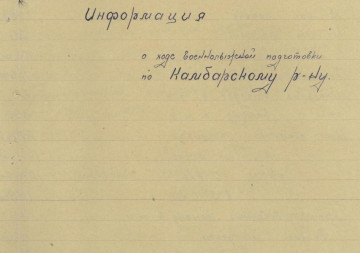 Информация
о ходе военнолыжной подготовки
по Камбарскому р-ну.